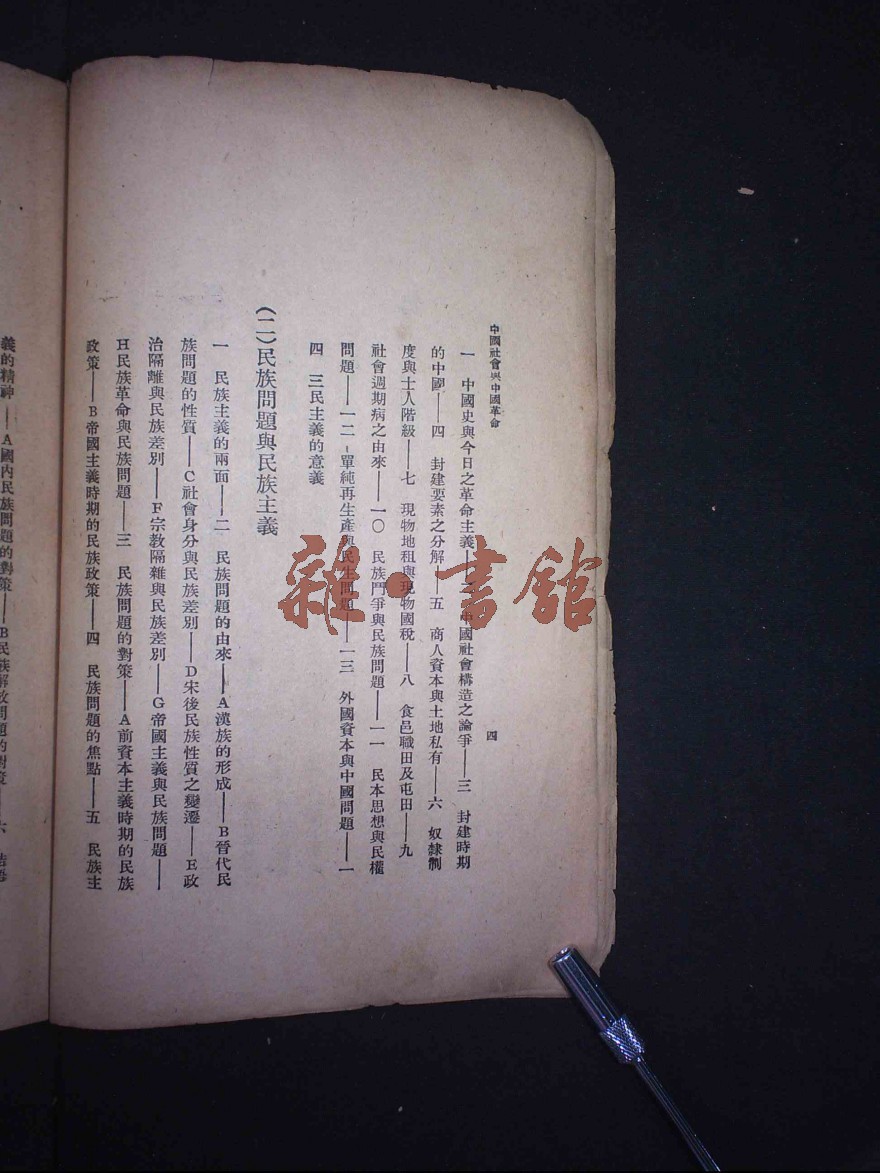 中國社會與中國革命
四
一　中國史與今日之革命主義——二　中國社會構造之論爭——三　封建時期
的中國——四　封建要素之分解——五　商人資本與土地私有——六　奴隸制
度與士人階級——七　現物地租與現物國稅——八　食邑職田及屯田——九
社會週期病之由來——一〇　民族鬥爭與民族問題——一一　民本思想與民權
問題——一二　單純再生產與民生問題——一三　外國資本與中國問題——一
四　三民主義的意義
（二）民族問題與民族主義
一　民族主義的兩面——二　民族問題的由來——A漢族的形成——B晉代民
族問題的性質——C社會身分與民族差別——D宋後民族性質之變遷——E政
治隔離與民族差別——F宗教隔離與民族差別——G帝國主義與民族問題——
H民族革命與民族問題——三　民族問題的對策——A前資本主義時期的民族
政策——B帝國主義時期的民族政策——四　民族問題的焦點——五　民族主
義的精神——A國內民族問題的對策——B民族解放問題的對策——六　結語
雜·書館